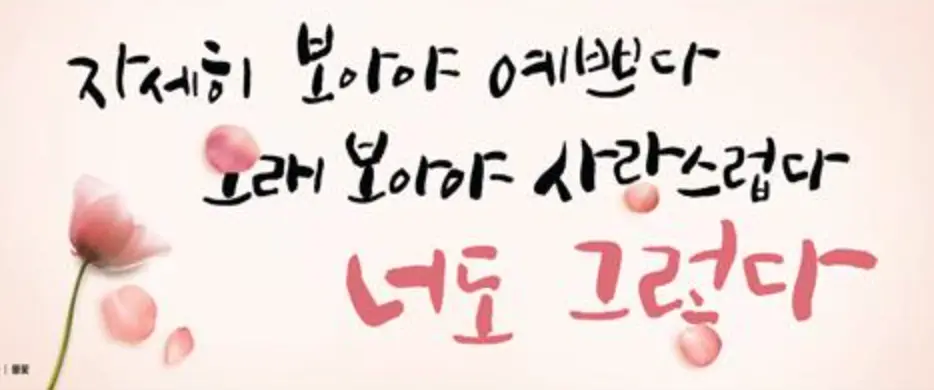 자세히 보아야 예쁘다
오래 보아야 사랑스럽다
너도 그렇다
풀꽃